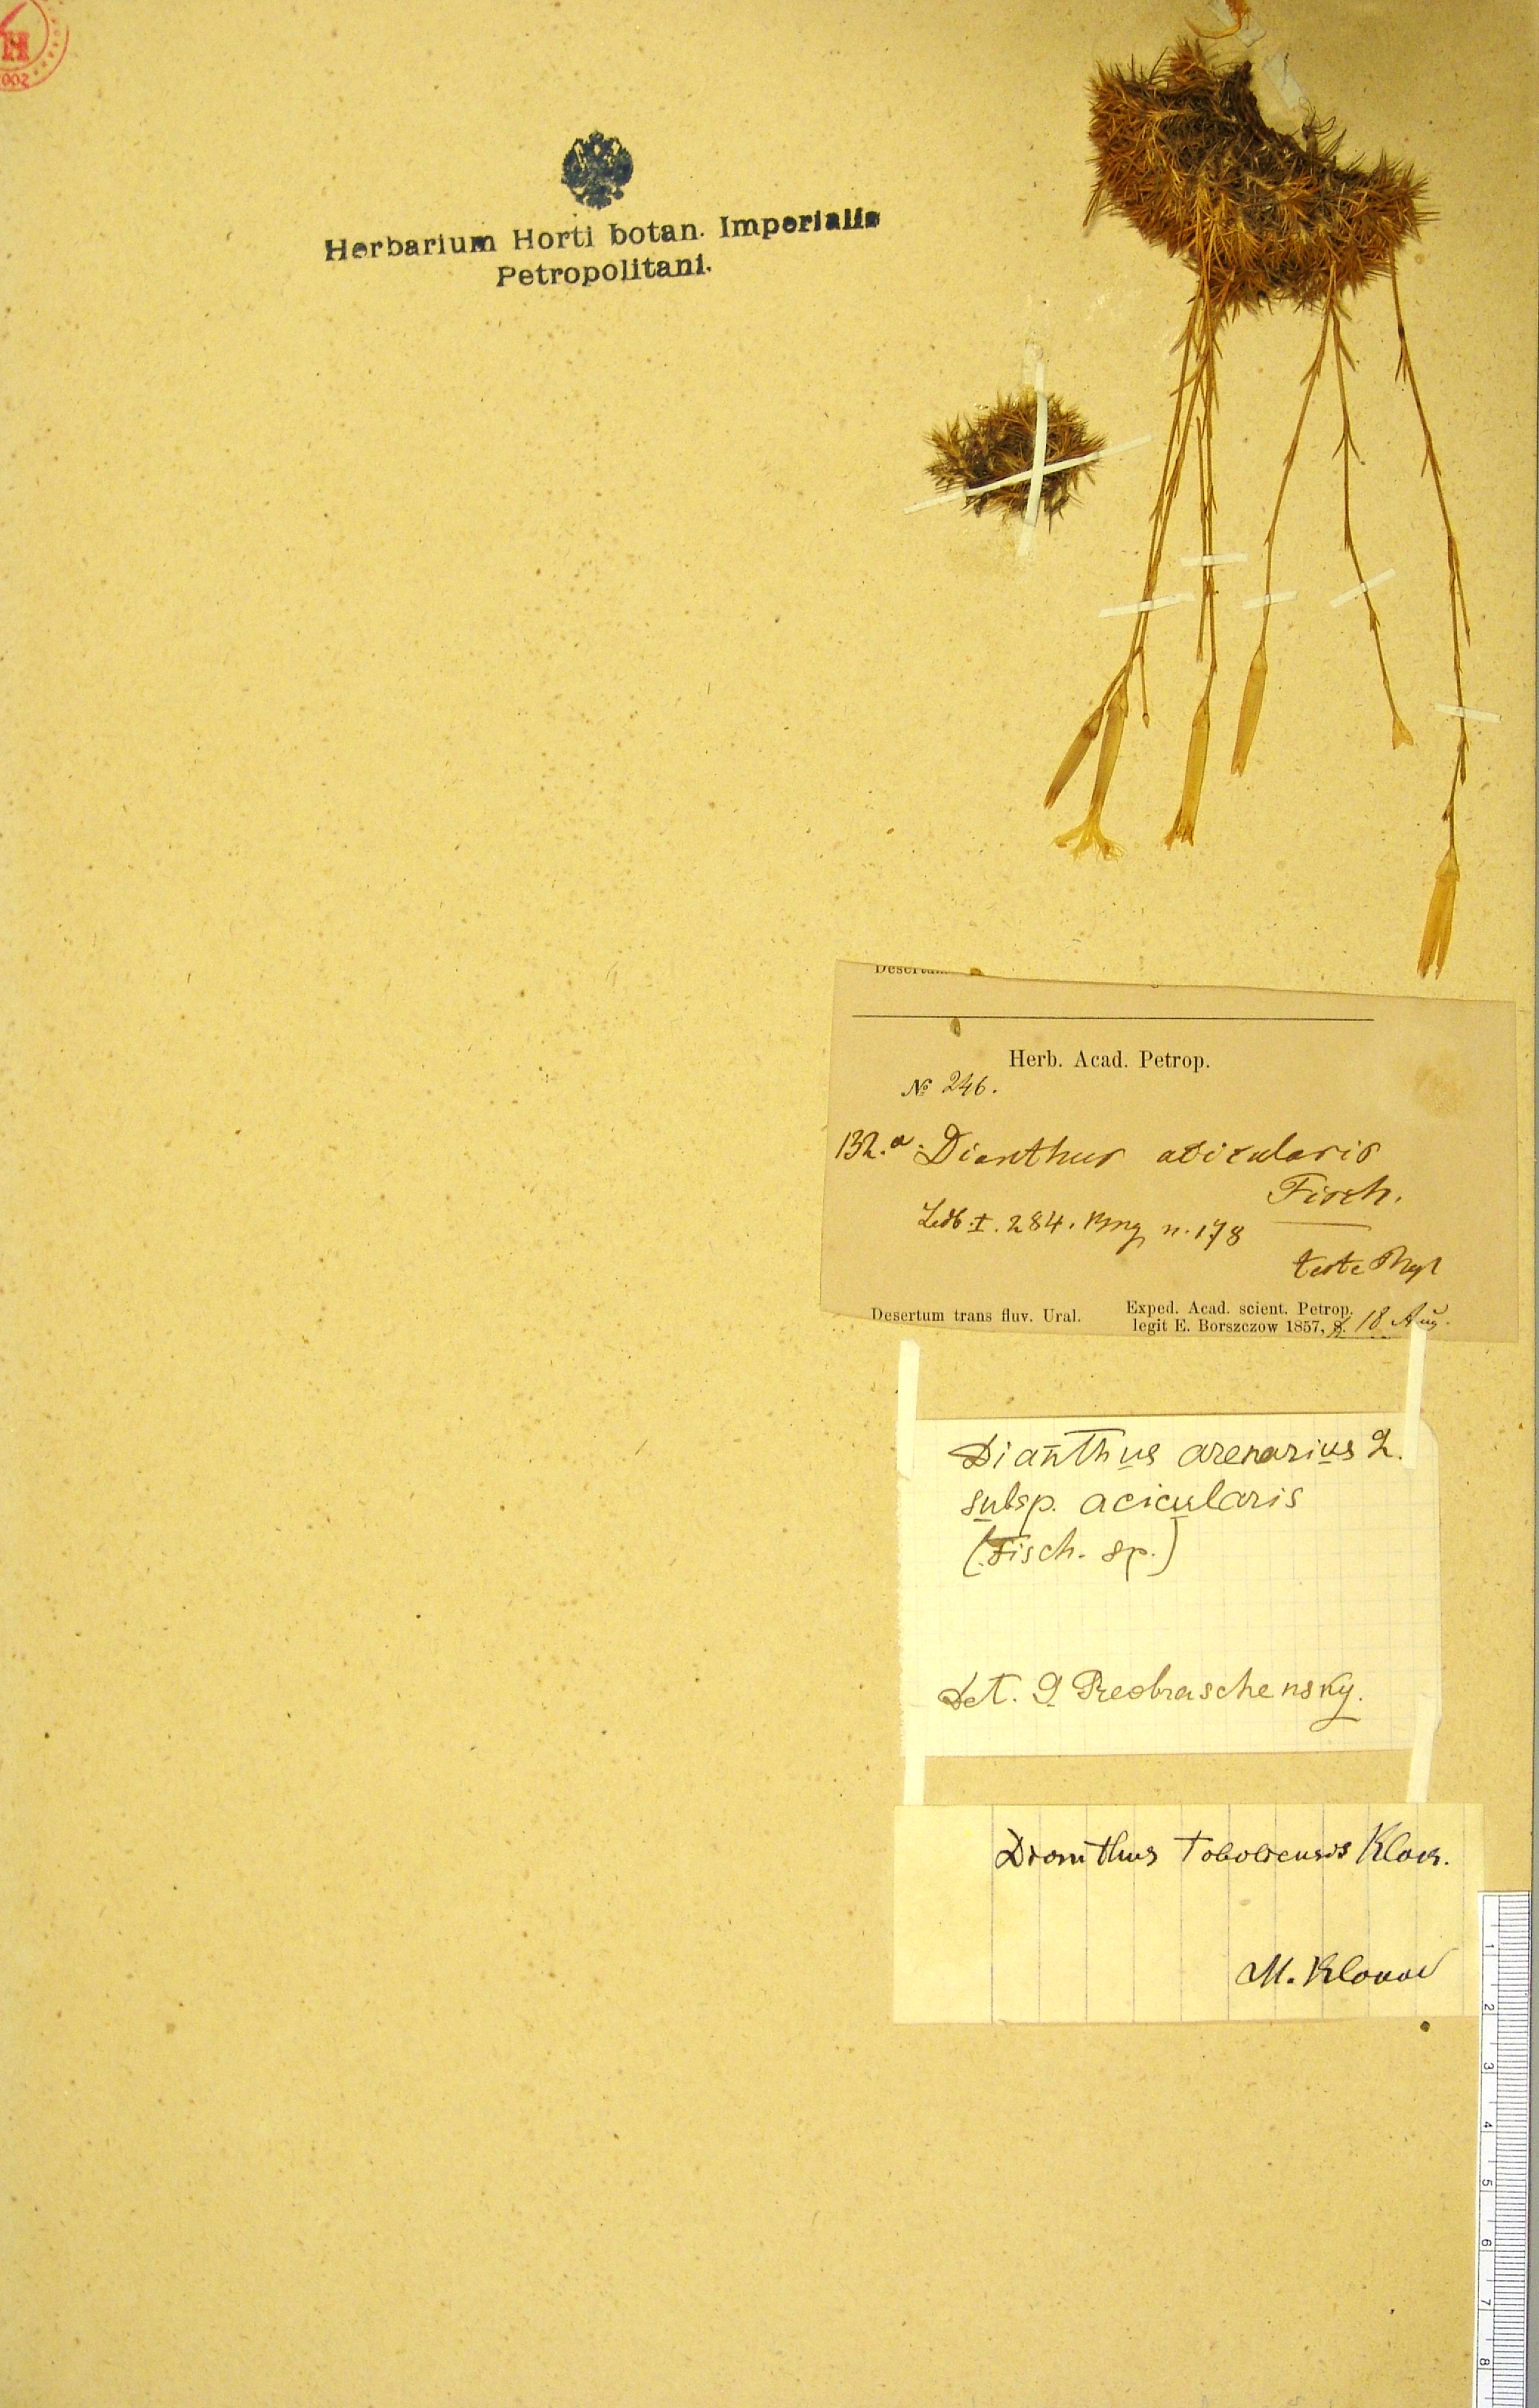 H
002
Herbarium Horti botan. Imperialis
Petropolitani.
Herb. Acad. Petrop.
№ 246.
132.a Dianthus acicularis
Fisch.
Ledb. I. 284. Bng n. 178
teste
Desertum trans fluv. Ural. Exped. Acad. scient. Petrop.
legit E. Borszczow 1857, 18 Aug.
Dianthus arenarius L.
subsp. acicularis
(Fisch. sp.)
Det. Preobraschensky.
Dianthus tobolensis Klok.
M. Klokov
1
2
3
4
5
6
7
8